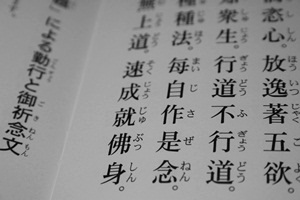 恣心。放逸著五欲。
知衆生。行道不行道。
種種法。每自作是念。
無上道。速成就佛身。
」による勤行と御祈念文